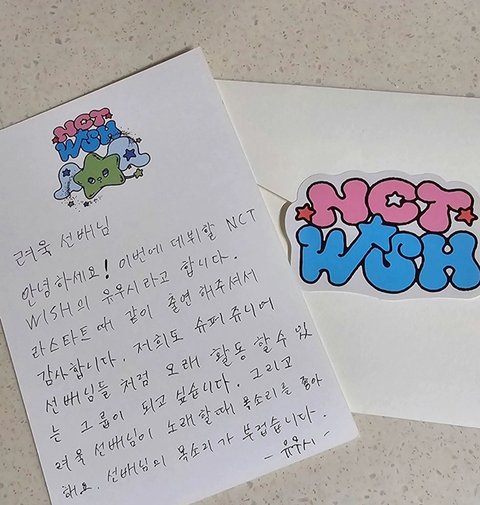 NCT
WISH
려욱 선배님
안녕하세요! 이번에 데뷔할 NCT
WISH의 유우시라고 합니다.
라스타트 때 같이 출연해주셔서
감사합니다. 저희도 슈퍼쥬니어
선배님들처럼 오래 활동할 수 있
는 그룹이 되고 싶습니다. 그리고
려욱 선배님이 노래할 때 목소리를 좋아
해요. 선배님의 목소리가 부럽습니다.
- 유우시 -
NCT
WISH